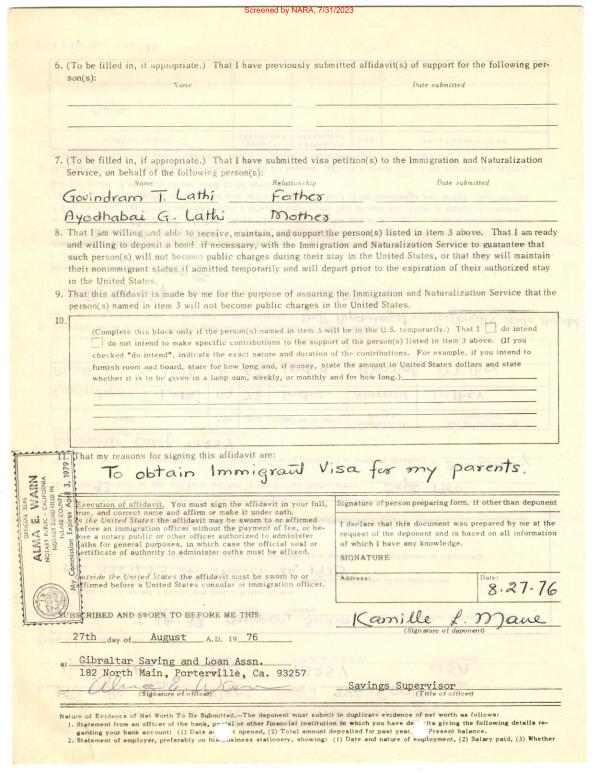 Screened by NARA, 7/31/2023
6. (To be filled in, if appropriate.) That I have previously submitted affidavit(s) of support for the following per-
son(s):
Name Date submitted
7. (To be filled in, if appropriate.) That I have submitted visa petition(s) to the Immigration and Naturalization
Service, on behalf of the following person(s):
Name Relationship Date submitted
Govindram T. Lathi Father
Ayodhabai G. Lathi Mother
8. That I am willing and able to receive, maintain, and support the person(s) listed in item 3 above. That I am ready
and willing to deposit a bond, if necessary, with the Immigration and Naturalization Service to guarantee that
such person(s) will not become public charges during their stay in the United States, or that they will maintain
their nonimmigrant status if admitted temporarily and will depart prior to the expiration of their authorized stay
in the United States.
9. That this affidavit is made by me for the purpose of assuring the Immigration and Naturalization Service that the
person(s) named in item 3 will not become public charges in the United States.
10.
(Complete this block only if the person(s) named in item 3 will be in the U.S. temporarily.) That I do intend
do not intend to make specific contributions to the support of the person(s) listed in item 3 above. (If you
checked "do intend", indicate the exact nature and duration of the contributions. For example, if you intend to
furnish room and board, state for how long and, if money, state the amount in United States dollars and state
whether it is to be given in a lump sum, weekly, or monthly and for how long.)
That my reasons for signing this affidavit are:
To obtain Immigrant Visa for my parents.
OFFICIAL SEAL
ALMA E. WARN
NOTARY PUBLIC - CALIFORNIA
NOTARY BOND FILED IN
TULARE COUNTY
My Commission Expires April 3, 1979
Execution of affidavit. You must sign the affidavit in your full,
true, and correct name and affirm or make it under oath.
In the United States the affidavit may be sworn to or affirmed
before an immigration officer without the payment of fee, or be-
fore a notary public or other officer authorized to administer
oaths for general purposes, in which case the official seal or
certificate of authority to administer oaths must be affixed.
Outside the United States the affidavit must be sworn to or
affirmed before a United States consular or immigration officer.
Signature of person preparing form, if other than deponent
I declare that this document was prepared by me at the
request of the deponent and is based on all information
of which I have any knowledge.
SIGNATURE
Address: Date:
8-27-76
SUBSCRIBED AND SWORN TO BEFORE ME THIS
(Signature of deponent)
27th day of August A.D. 19 76
at Gibraltar Saving and Loan Assn.
182 North Main, Porterville, Ca. 93257
Alma E. Warn Savings Supervisor
(Signature of officer) (Title of officer)
Nature of Evidence of Net Worth To Be Submitted.—The deponent must submit in duplicate evidence of net worth as follows:
1. Statement from an officer of the bank, or other financial institution in which you have giving the following details re-
garding your bank account: (1) Date opened, (2) Total amount deposited for past year, Present balance.
2. Statement of employer, preferably on his business stationery, showing: (1) Date and nature of employment, (2) Salary paid, (3) Whether